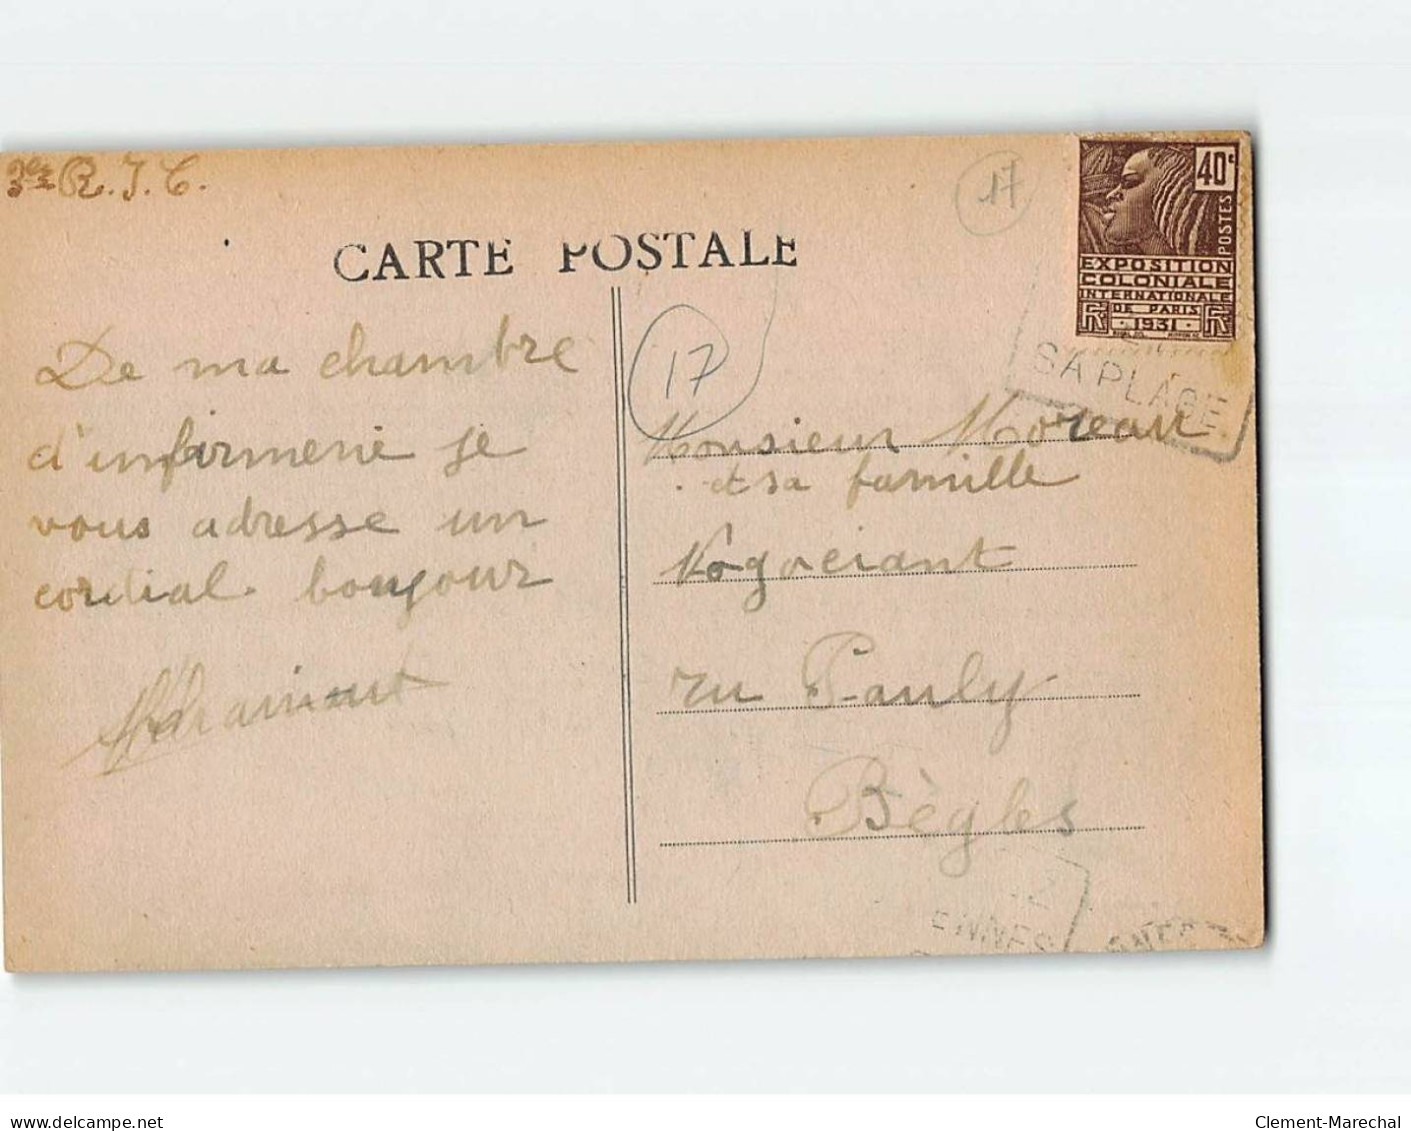 R. I. C.
17
40c
POSTES
EXPOSITION
COLONIALE
INTERNATIONALE
DE PARIS
RF · 1931 · RF
CARTE POSTALE
SA PLAGE
17
De ma chambre
d'infirmerie je
vous adresse un
cordial bonjour
Monsieur Moreau
et sa famille
Négociant
ru Pauly
Bègles
ENNES
www.delcampe.net
Clement-Marechal